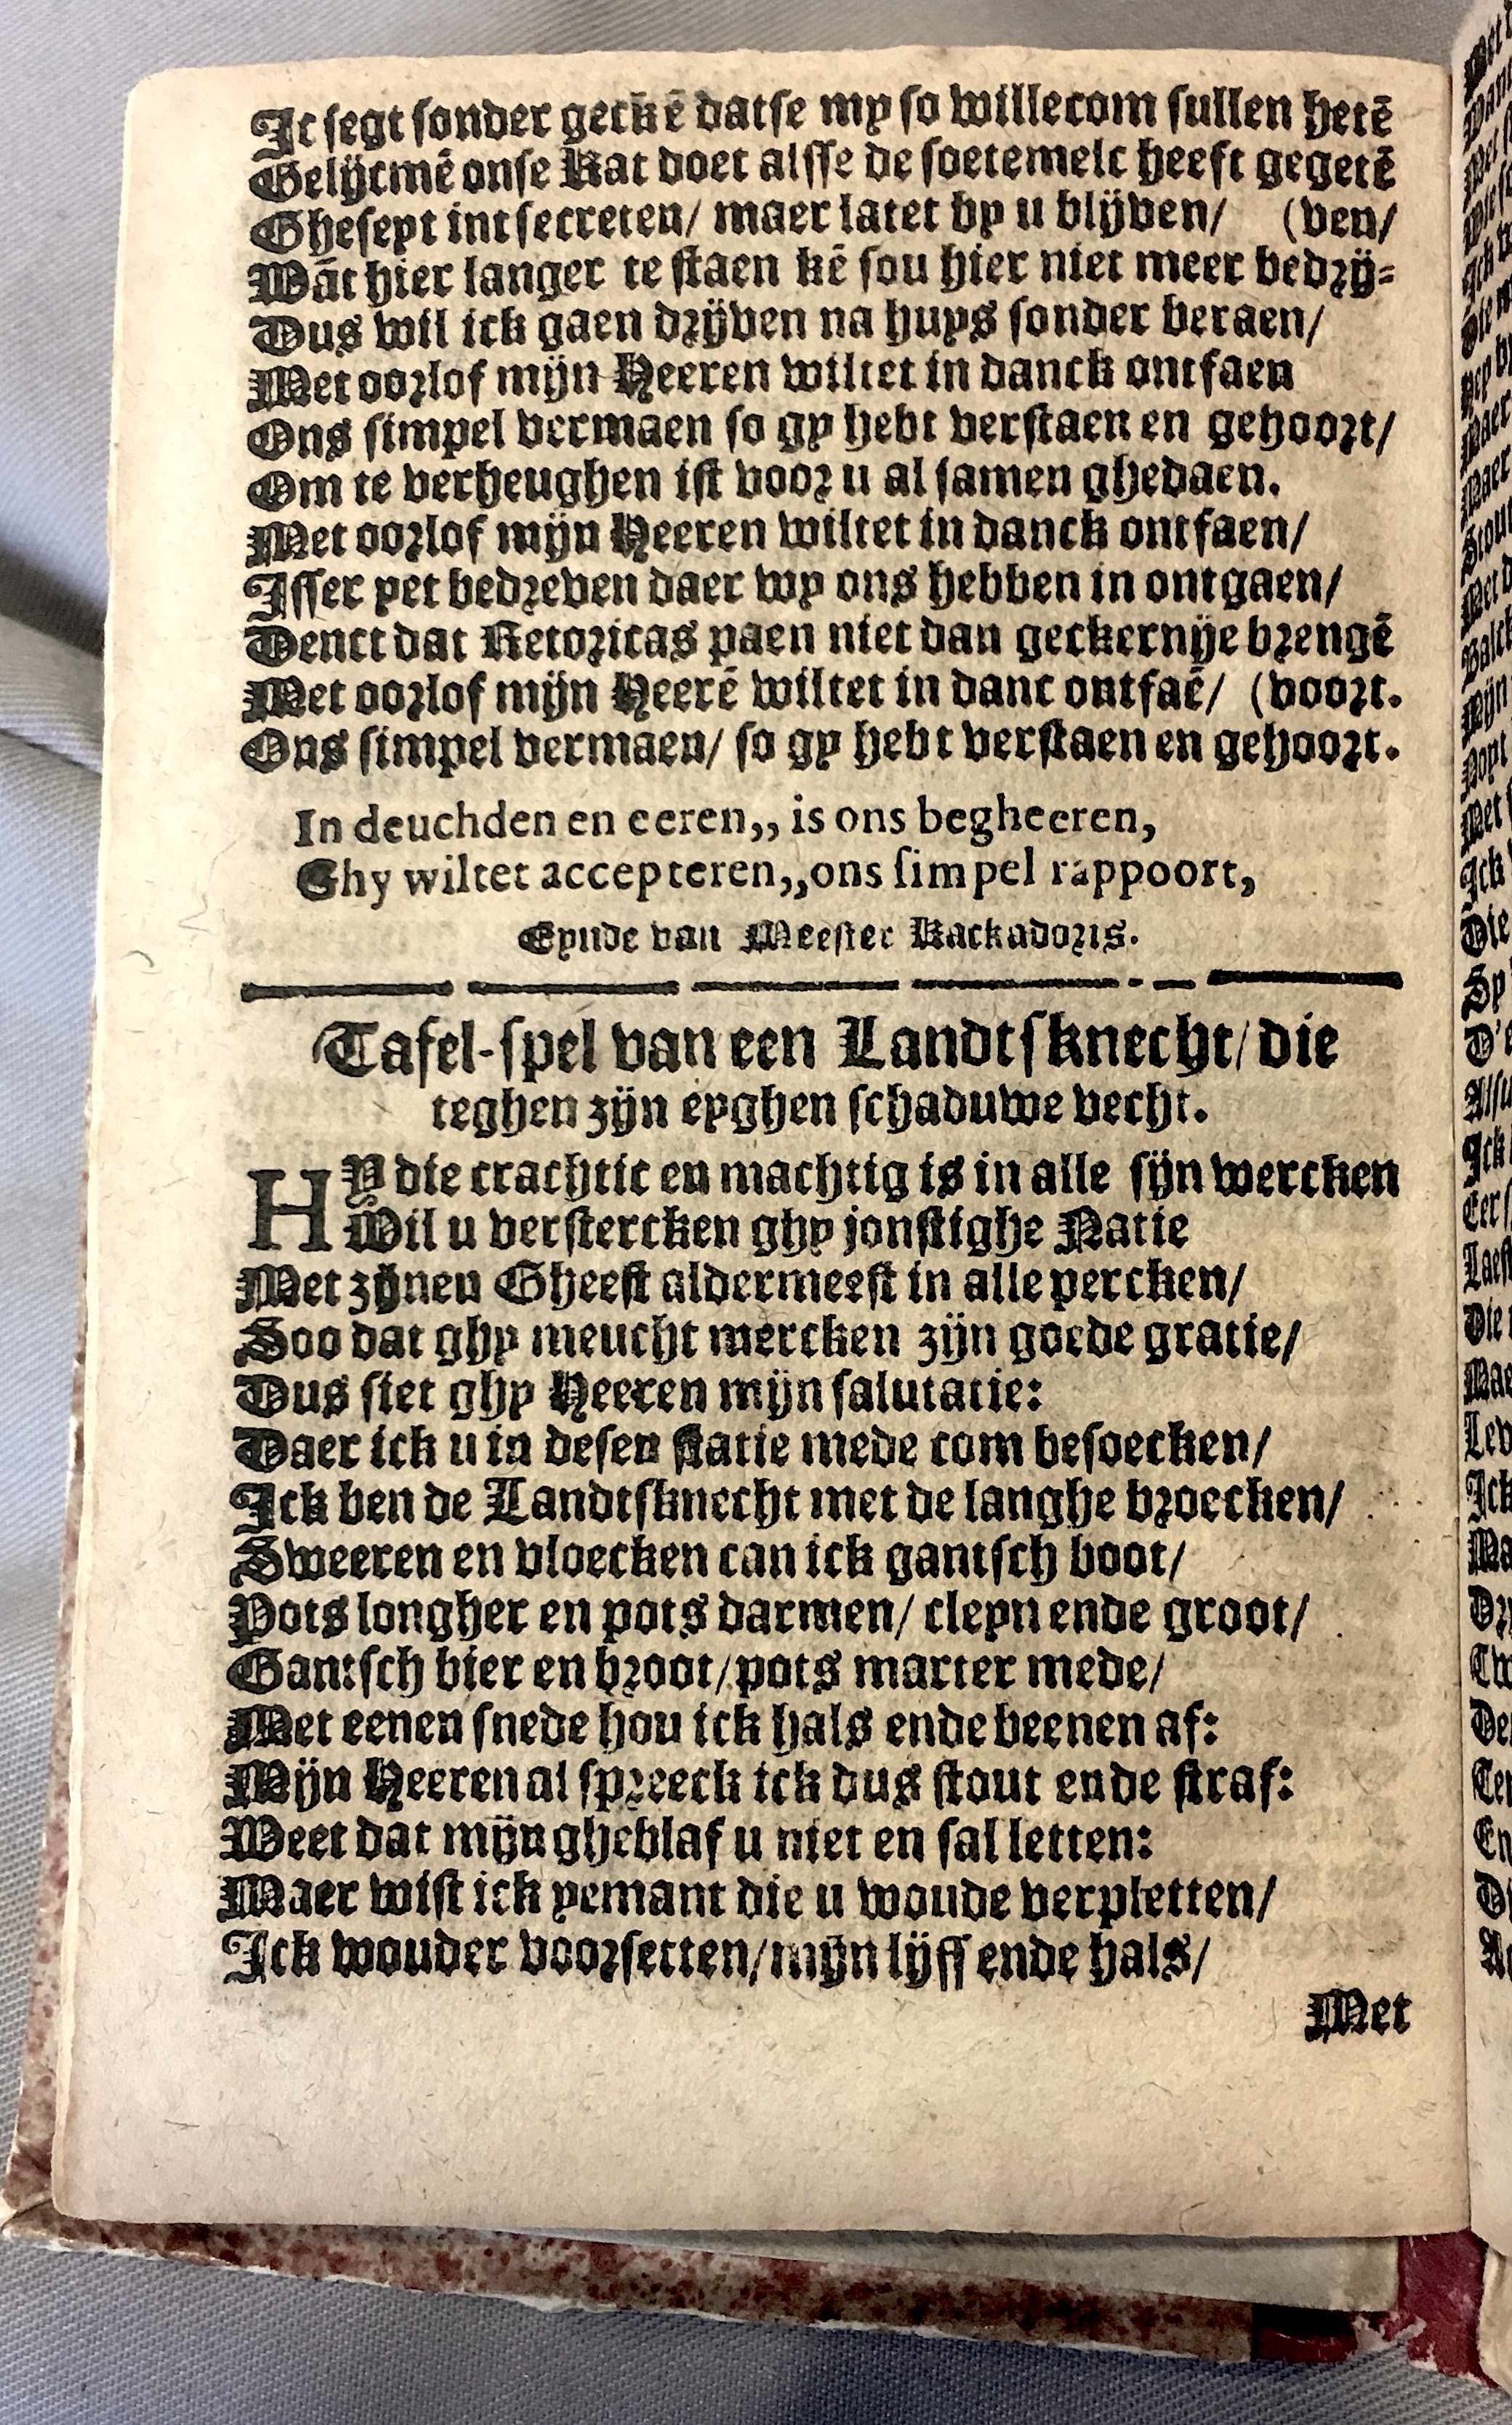 Ic segt sonder geckē datse my so willecom sullen hetē
Gelijcmē onse Kat doet alsse de soetemelc heeft gegetē
Gheseyt int secreten/ maer latet by u blijven/ (ven/
Wāt hier langer te staen kē sou hier niet meer bedrij=
Dus wil ick gaen drijven na huys sonder beraen/
Met oorlof mijn Heeren wiltet in danck ontfaen
Ons simpel vermaen so gy hebt verstaen en gehoort/
Om te verheughen ist voor u al samen ghedaen.
Met oorlof mijn Heeren wiltet in danck ontfaen/
Isser yet bedreven daer wy ons hebben in ontgaen/
Denct dat Retoricas paen niet dan geckernije brengē
Met oorlof mijn Heerē wiltet in danc ontfaē/ (voort.
Ons simpel vermaen/ so gy hebt verstaen en gehoort.
In deuchden en eeren,, is ons begheeren,
Ghy wiltet accepteren,,ons simpel rappoort,
Eynde van Meester Kackadoris.
Tafel-spel van een Landtsknecht/ die
teghen zijn eyghen schaduwe vecht.
HY die crachtic en machtig is in alle sijn wercken
Wil u verstercken ghy jonstighe Natie
Met zijnen Gheest aldermeest in alle percken/
Soo dat ghy meucht mercken zijn goede gratie/
Dus siet ghy Heeren mijn salutatie:
Daer ick u in desen statie mede com besoecken/
Ick ben de Landtsknecht met de langhe broecken/
Sweeren en vloecken can ick gantsch boot/
Pots longher en pots darmen/ cleyn ende groot/
Gantsch bier en broot/ pots marter mede/
Met eenen snede hou ick hals ende beenen af:
Mijn Heeren al spreeck ick dus stout ende straf:
Weet dat mijn gheblaf u niet en sal letten:
Maer wist ick yemant die u woude verpletten/
Ick wouder voorsetten/ mijn lijff ende hals/
Met